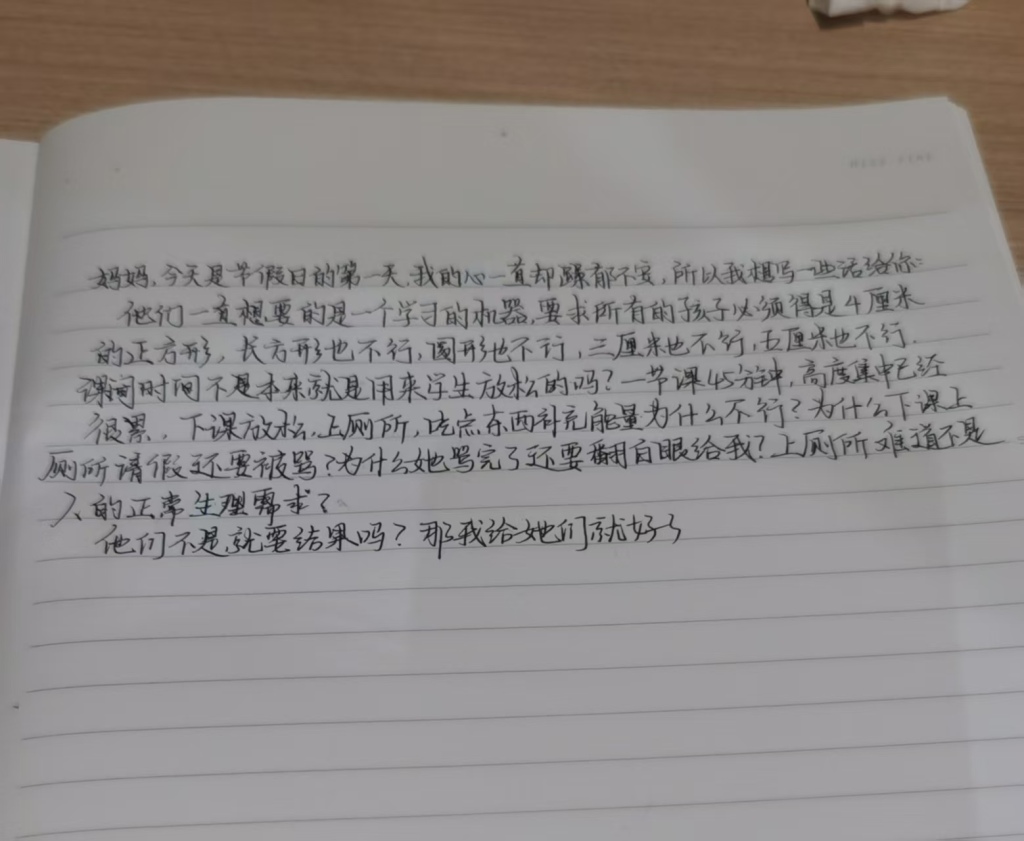 妈妈,今天是节假日的第一天,我的心一直却躁郁不安,所以我想写一些话给你:
他们一直想要的是一个学习的机器,要求所有的孩子必须得是4厘米
的正方形,长方形也不行,圆形也不行,三厘米也不行,五厘米也不行.
课间时间不是本来就是用来学生放松的吗?一节课45分钟,高度集中已经
很累,下课放松,上厕所,吃点东西补充能量为什么不行?为什么下课上
厕所请假还要被骂?为什么她骂完了还要翻白眼给我?上厕所难道不是
人的正常生理需求?
他们不是就要结果吗?那我给她们就好了